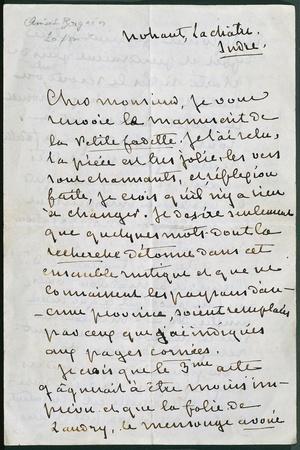 Nohant, La Châtre.
Indre.
Cher monsieur, je vous
renvoie le manuscrit de
la Petite fadette. Je l'ai relu,
la pièce est très jolie, les vers
sont charmants, et réflexion
faite, je crois qu'il n'y a rien
à changer. Je desire seulement
que quelques mots dont la
recherche détonne dans cet
ensemble rustique et que ne
connaissent les paysans d'au-
cune province, soient remplacés
par ceux que j'ai indiqués
aux pages cornées.
Je crois que le 3me acte
gagnerait à être moins im-
prévu et que la folie de
Landry, le mensonge avoué